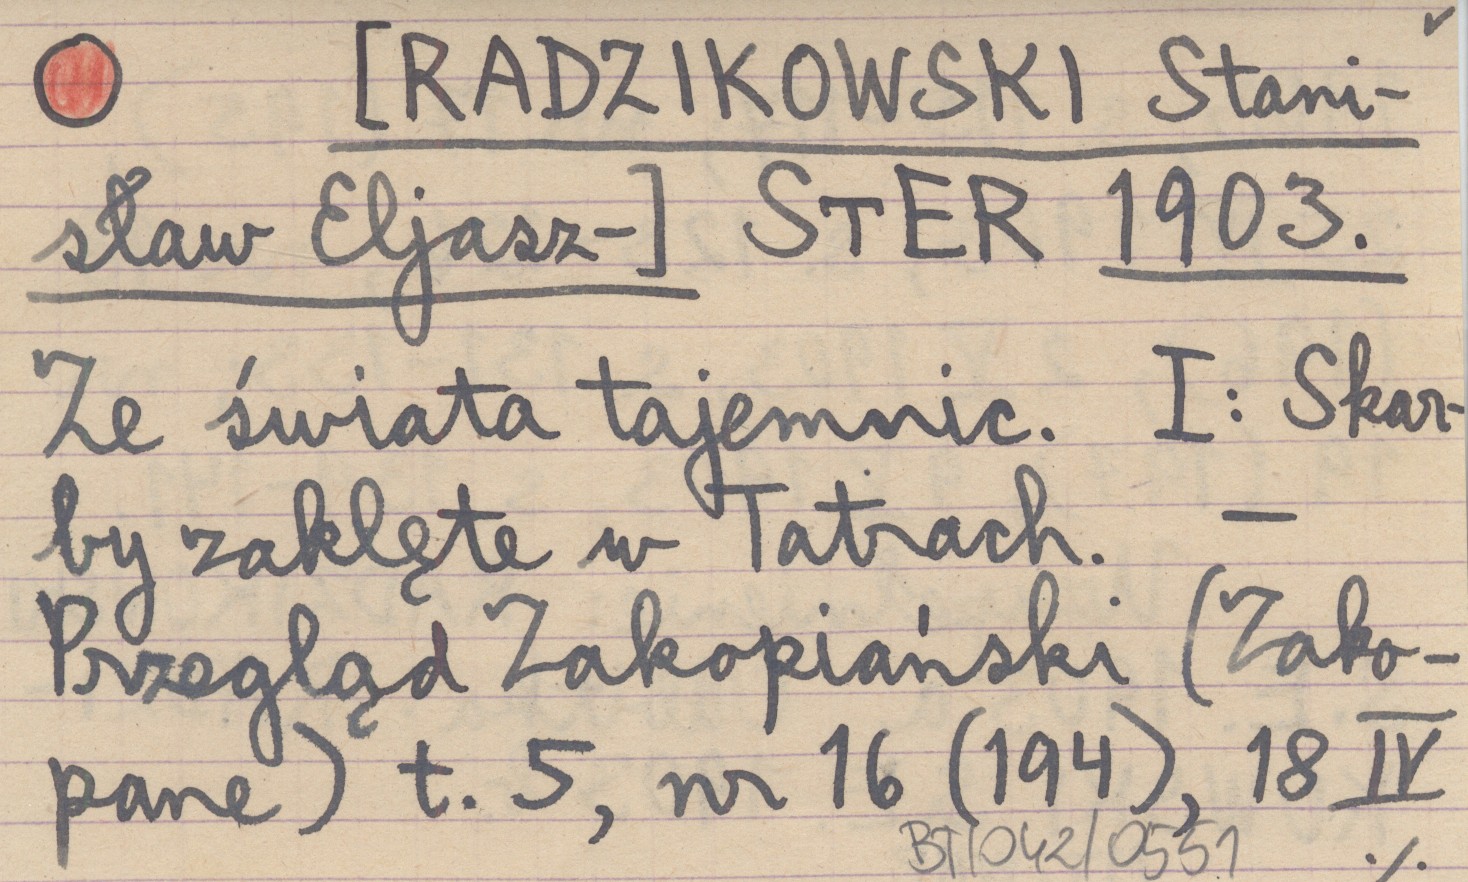 [RADZIKOWSKI Stani-
sław Eljasz-] STER 1903.
Ze świata tajemnic. I: Skar-
by zaklęte w Tatrach. —
Przegląd Zakopiański (Zako-
pane) t. 5, nr 16 (194), 18 IV
BT/042/0551 ./.